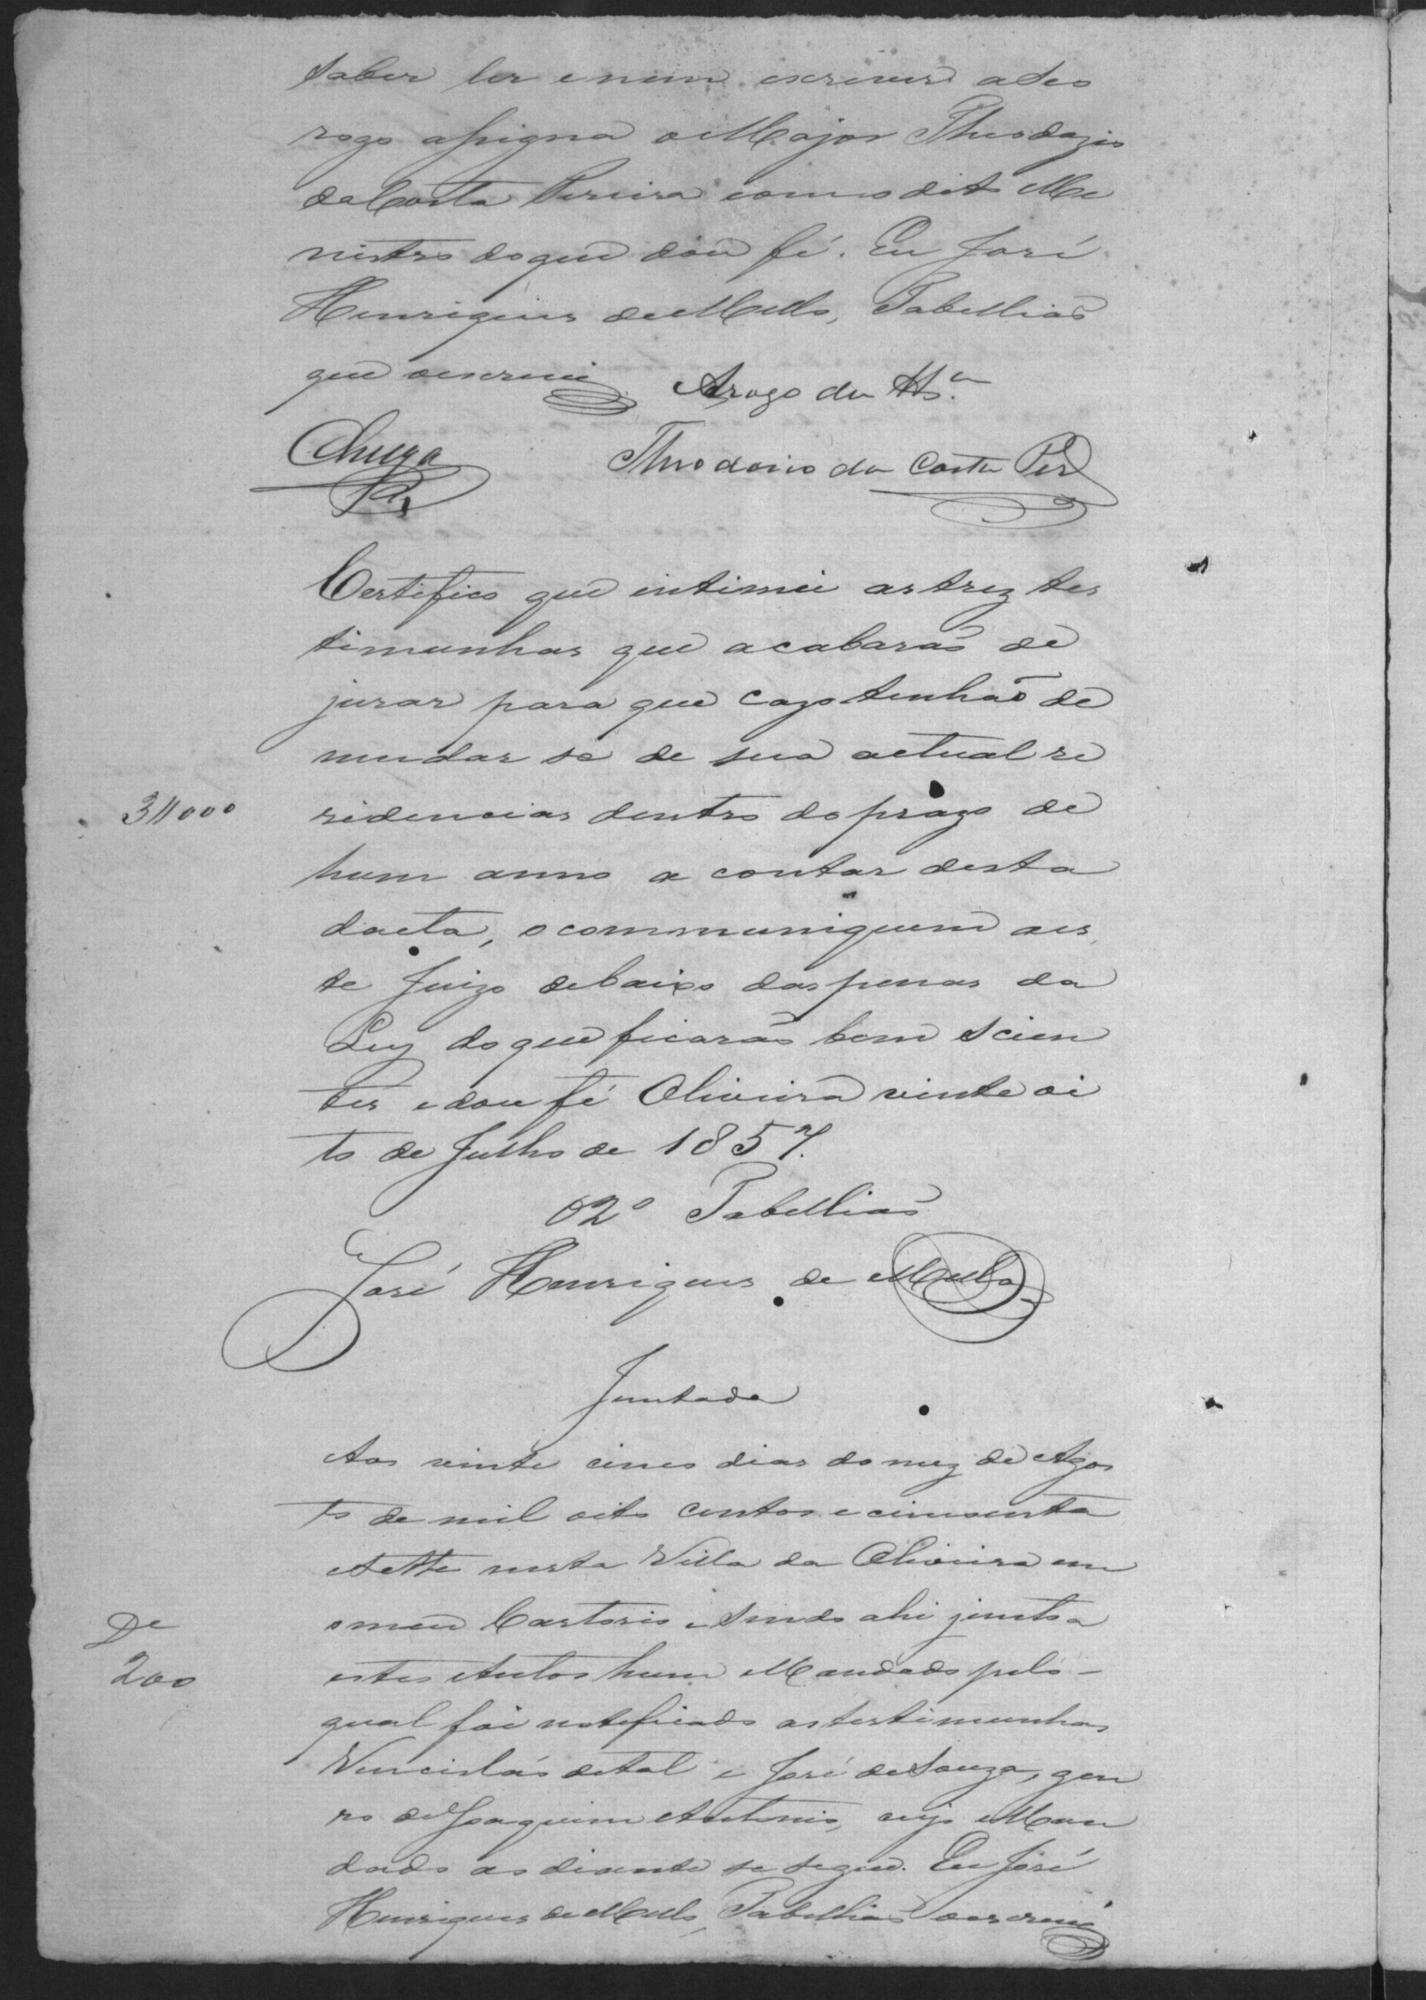 saber ler e nem escrever a seo
rogo assigna o Major Theodozio
da Costa Pereira com o dito Me
nistro do que dou fé. Eu José
Henriques de Mello, Tabelliaõ
que o escrevi Arogo da
Theodosio da Costa Per
Certifico que intimei as trez tes
timunhas que acabaraõ de
jurar para que cazo tenhaõ de
mudar se de sua actual re
3$000
zidencias dentro do prazo de
hum anno a contar desta
dacta, o communiquem a es
te Juizo debaixo das penas da
Ley do que ficaraõ bem scien
tes e dou fé Oliveira vinte oi
to de Julho de 1857.
O 2º Tabelliaõ
José Henriques de Mello
Juntada
Aos vinte cinco dias do mez de Agos
to de mil oito centos e cincoenta
e sette nesta Villa da Oliveira em
o meu Cartorio e sendo ahi junto a
De
200
estes Autos hum Mandado pelo
qual foi notificado as testimunhas
Vencisláo de tal e José de Souza, gen
ro de Joaquim Antonio, cujo Man
dado ao diante se segue. Eu José
Henriques de Mello, Tabelliaõ o escrevi